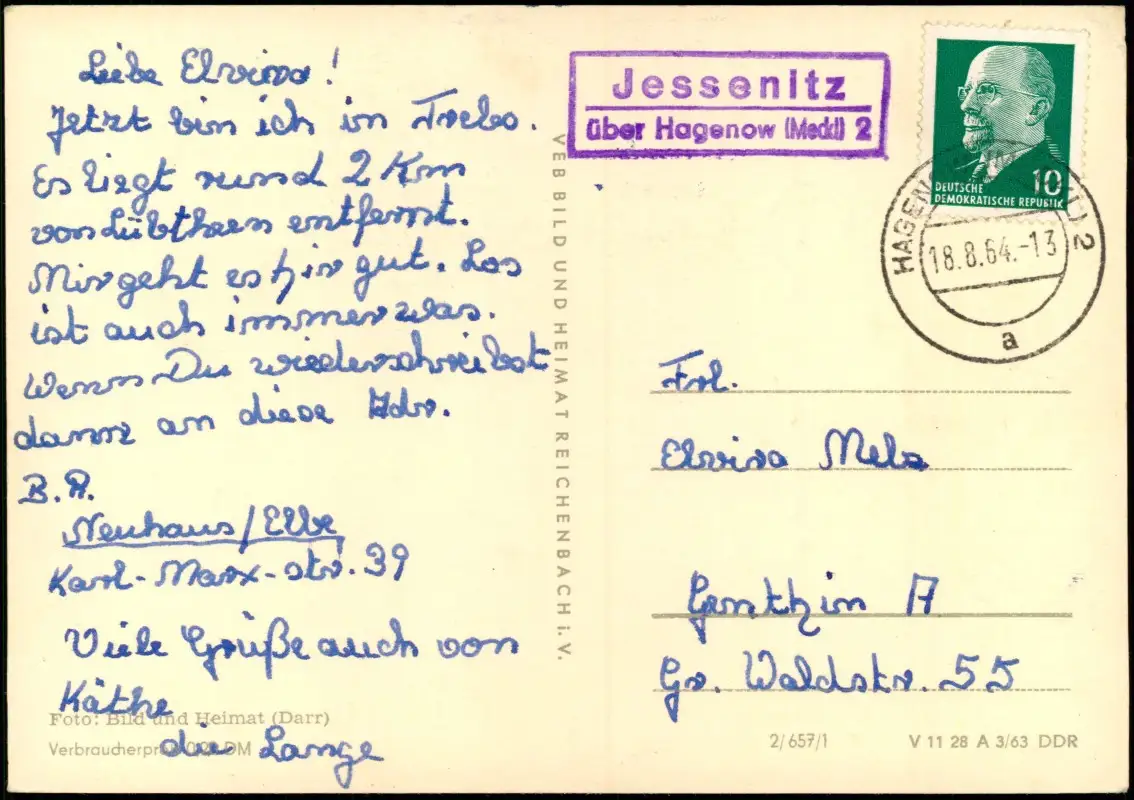 Liebe Elvira!
Jetzt bin ich in Trebs.
Es liegt rund 2 Km
von Lübtheen entfernt.
Mir geht es hir gut. Los
ist auch immer was.
Wenn Du wiederschreibst
dann an diese Adr.
B. R.
Neuhaus/Elbe
Karl-Marx-str. 39
Viele Grüße auch von
Käthe
die Lange
Foto: Bild und Heimat (Darr)
Verbraucherpreis 0,20 DM
VEB BILD UND HEIMAT REICHENBACH i. V.
Jessenitz
über Hagenow (Meckl) 2
10
DEUTSCHE
DEMOKRATISCHE REPUBLIK
HAGENOW 2
18.8.64.-13
a
Frl.
Elvira Mela
Genthin A
Gr. Waldstr. 55
2/657/1
V 11 28 A 3/63 DDR